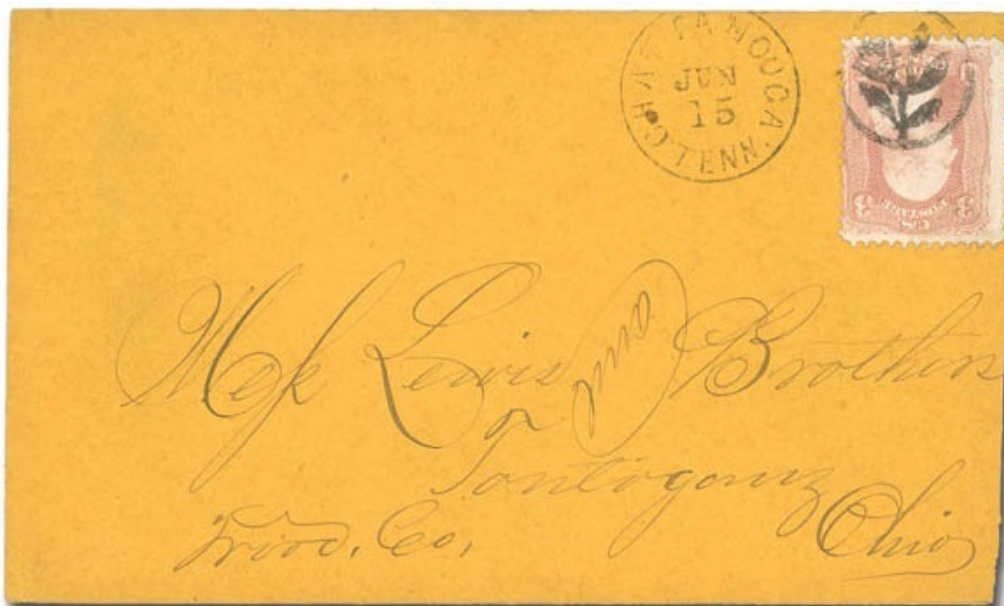 CHATTANOOGA
JUN
15
TENN.
3 3
U.S. POSTAGE
Mess Lewis and Brothers
or
Tontogany
Wood. Co,
Ohio